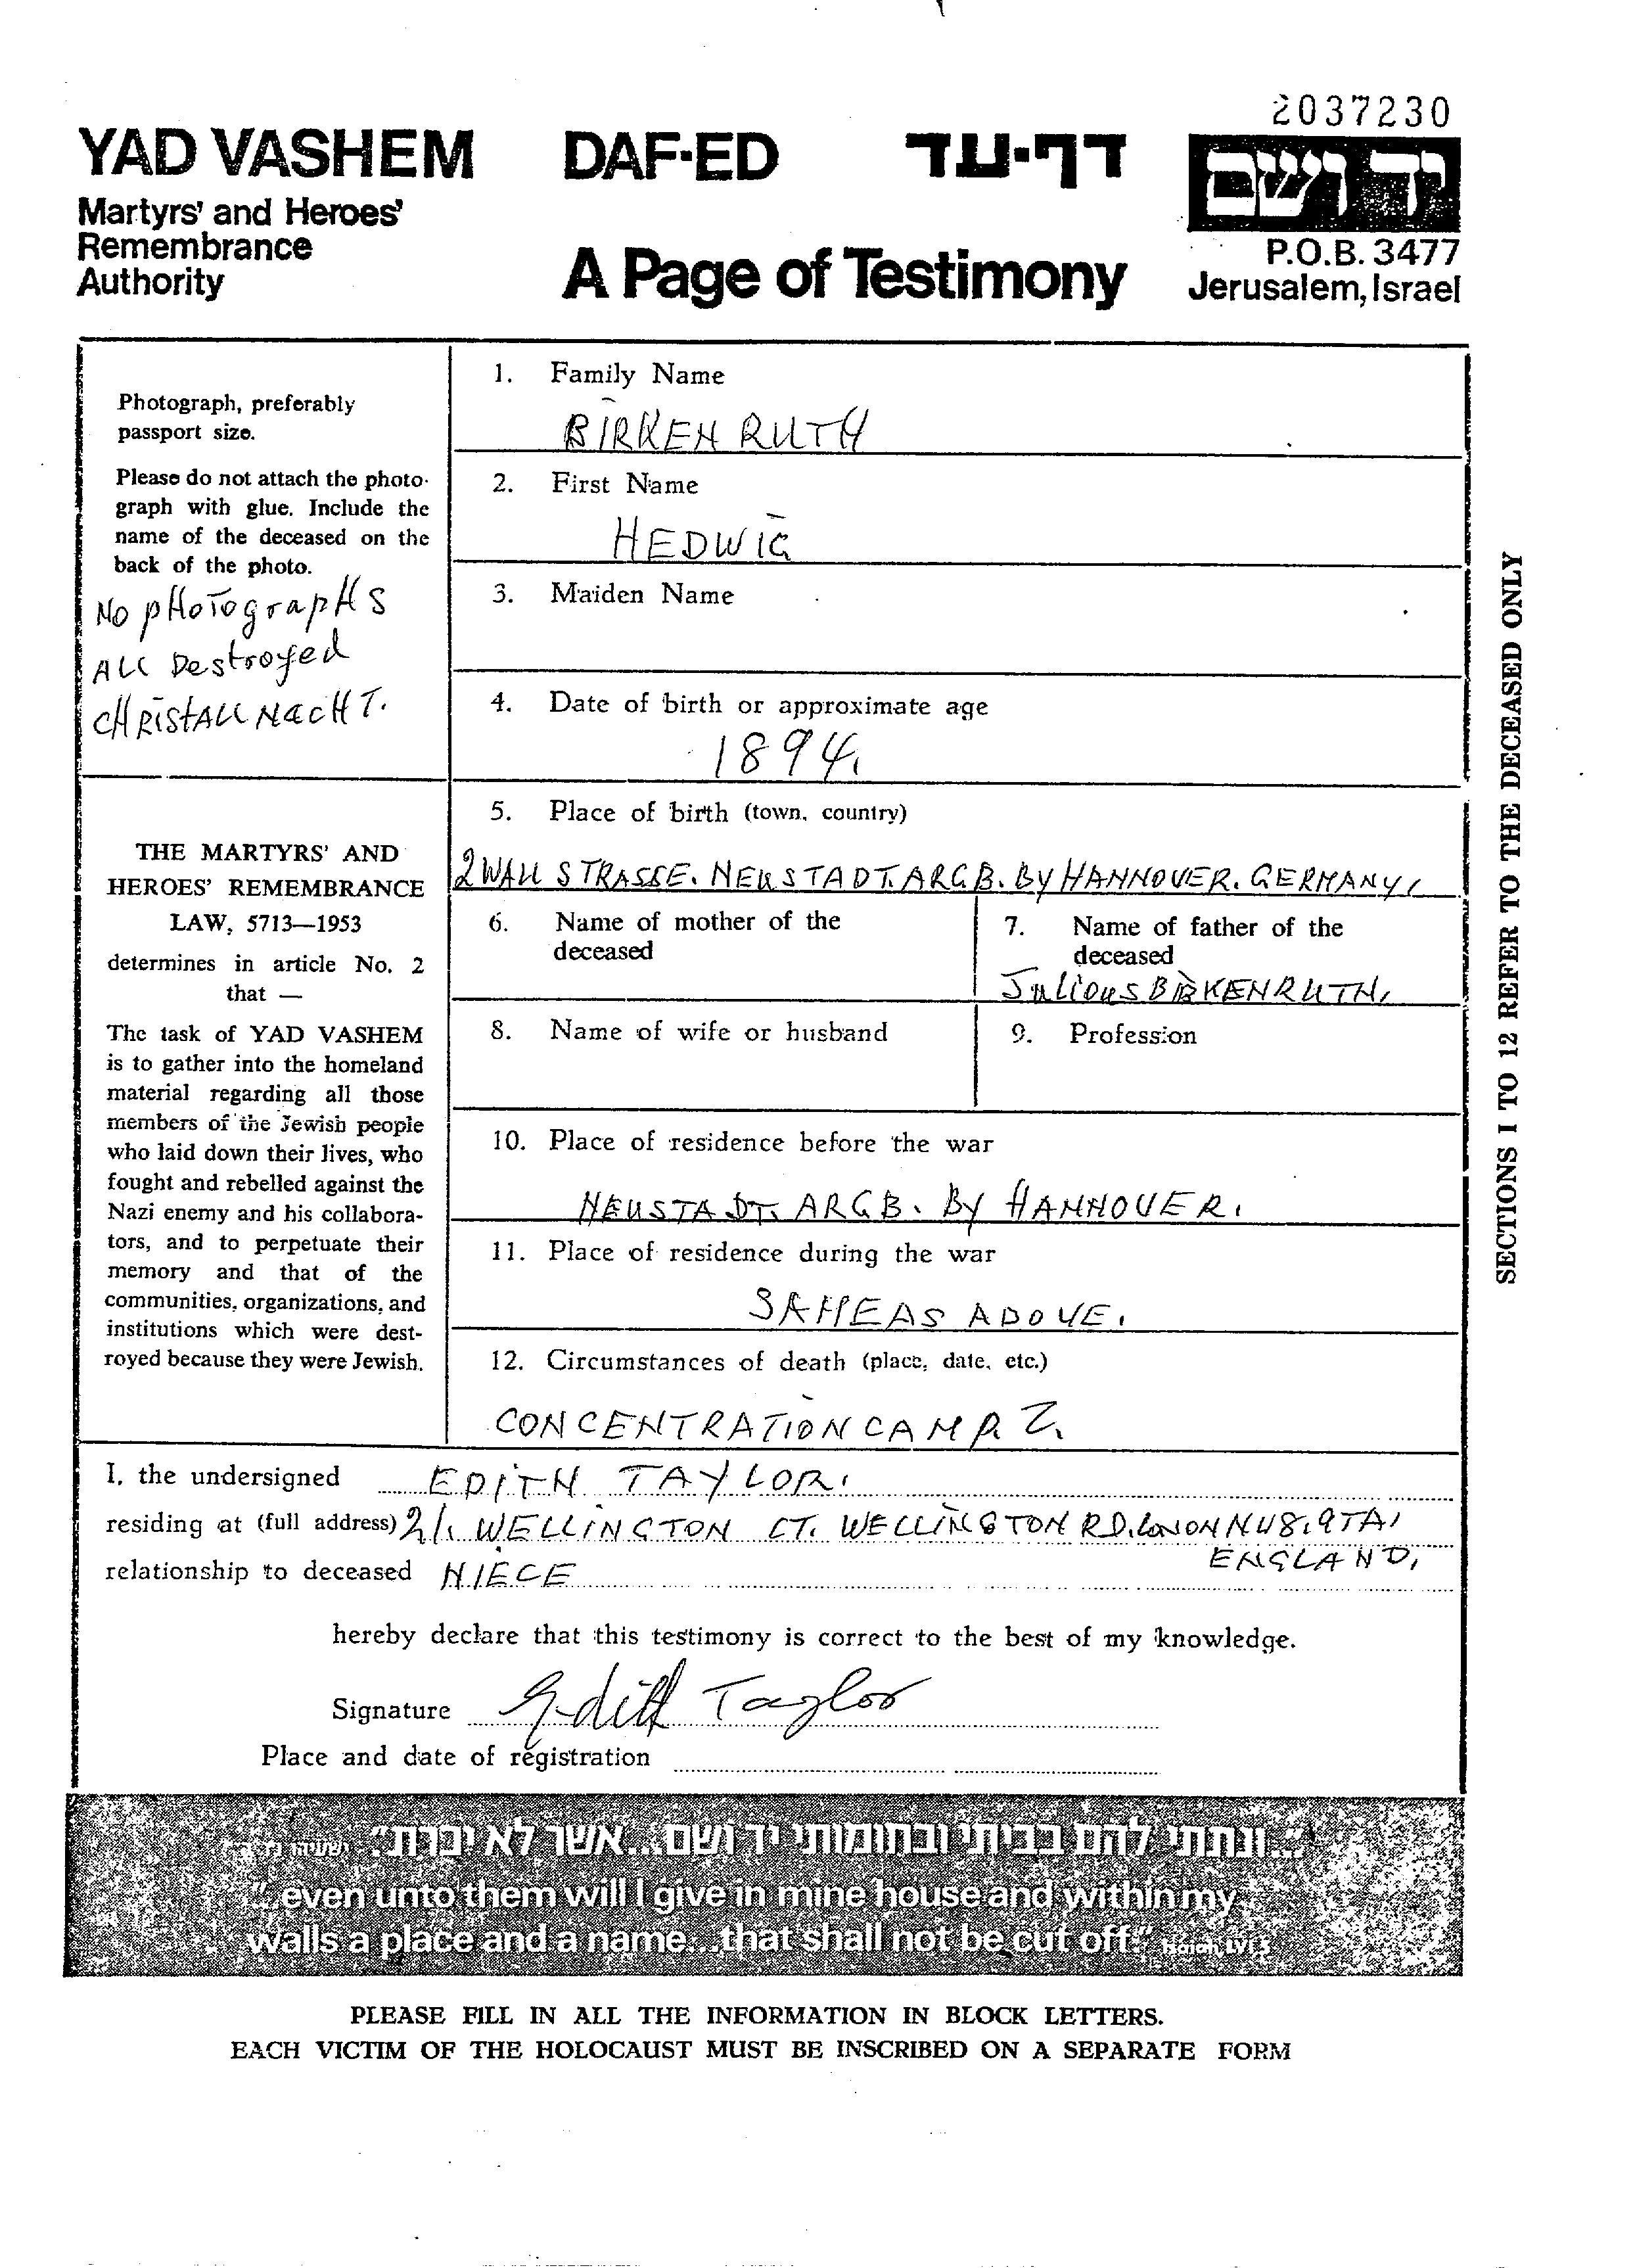 2037230
YAD VASHEM DAF-ED דף-עד יד ושם
Martyrs' and Heroes'
Remembrance
Authority
A Page of Testimony
P.O.B. 3477
Jerusalem, Israel
Photograph, preferably
passport size.
Please do not attach the photo-
graph with glue. Include the
name of the deceased on the
back of the photo.
No pHoTograpHS
ALL Destroyed
CHRISTALLNACHT.
THE MARTYRS' AND
HEROES' REMEMBRANCE
LAW, 5713—1953
determines in article No. 2
that —
The task of YAD VASHEM
is to gather into the homeland
material regarding all those
members of the Jewish people
who laid down their lives, who
fought and rebelled against the
Nazi enemy and his collabora-
tors, and to perpetuate their
memory and that of the
communities, organizations, and
institutions which were dest-
royed because they were Jewish.
1. Family Name
BIRKENRUTH
2. First Name
HEDWIG
3. Maiden Name
4. Date of birth or approximate age
1894.
5. Place of birth (town, country)
2 WALL STRASSE. NEUSTADT. ARGB. BY HANNOVER. GERMANY.
6. Name of mother of the
deceased
7. Name of father of the
deceased
JuLiouS BIRKENRUTH.
8. Name of wife or husband
9. Profession
10. Place of residence before the war
NEUSTADT. ARGB. By HANNOVER.
11. Place of residence during the war
SAME AS ABOVE.
12. Circumstances of death (place, date, etc.)
CONCENTRATION CAMP.
SECTIONS 1 TO 12 REFER TO THE DECEASED ONLY
I, the undersigned EDITH TAYLOR.
residing at (full address) 21. WELLINGTON CT. WELLINGTON RD. LONON NW8. 9TA.
ENGLAND.
relationship to deceased NIECE
hereby declare that this testimony is correct to the best of my knowledge.
Signature Edith Taylor
Place and date of registration
"...ונתתי להם בביתי ובחומותי יד ושם...אשר לא יכרת." ישעיה נו, ה
"...even unto them will I give in mine house and within my
walls a place and a name...that shall not be cut off." Isaiah, LVI, 5
PLEASE FILL IN ALL THE INFORMATION IN BLOCK LETTERS.
EACH VICTIM OF THE HOLOCAUST MUST BE INSCRIBED ON A SEPARATE FORM